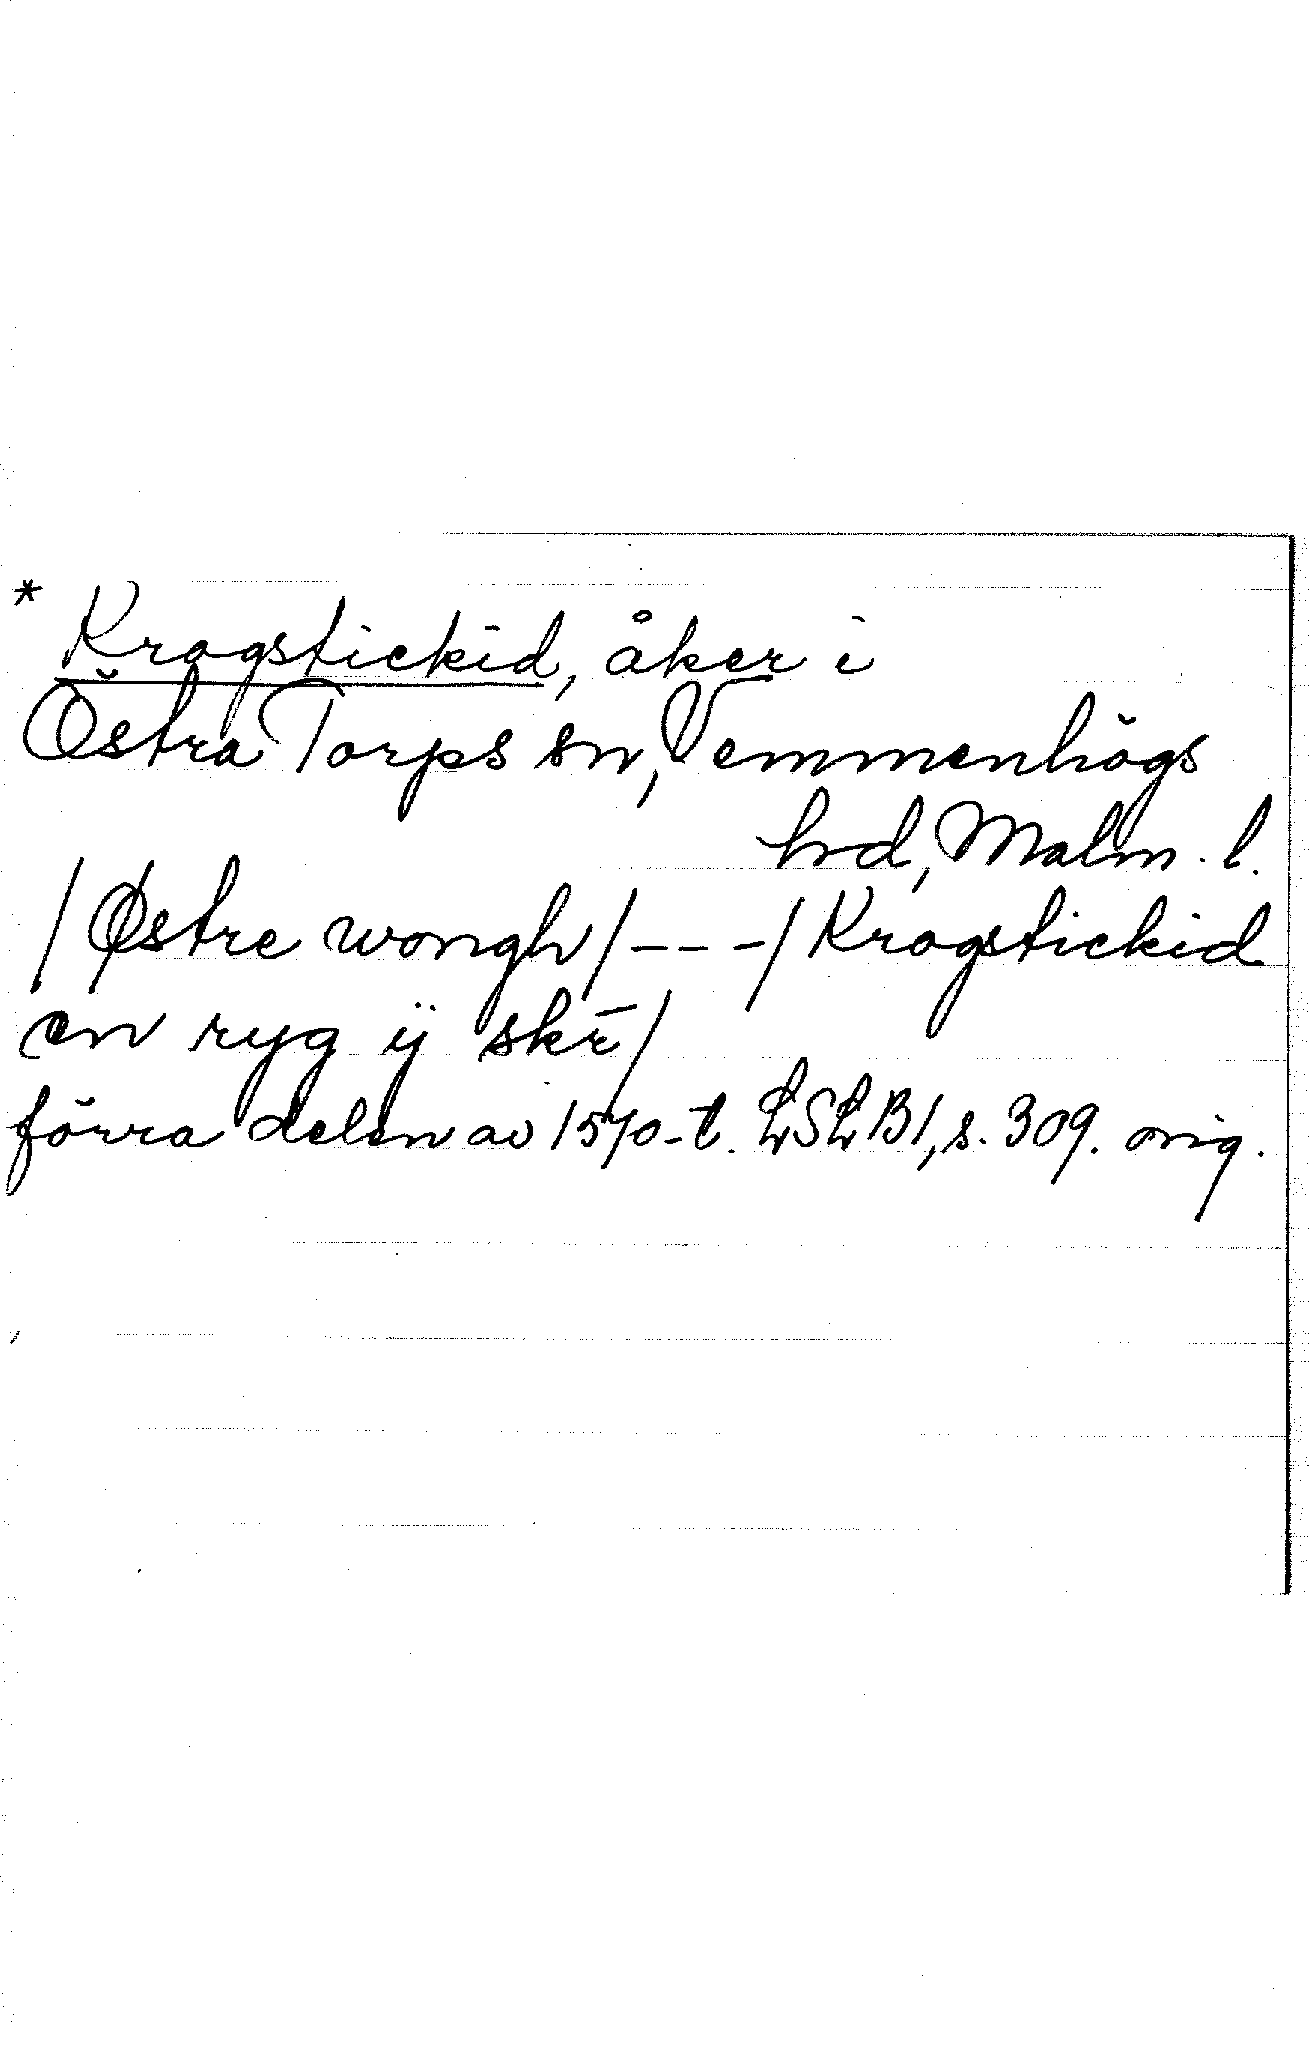 * Krogstickid, åker i
Östra Torps sn, Vemmenhögs
hrd, Malm. l.
/Østre wongh/---/Krogstickid
en ryg ij skr̄/
förra delen av 1570-t. LSLB1, s. 309. orig.